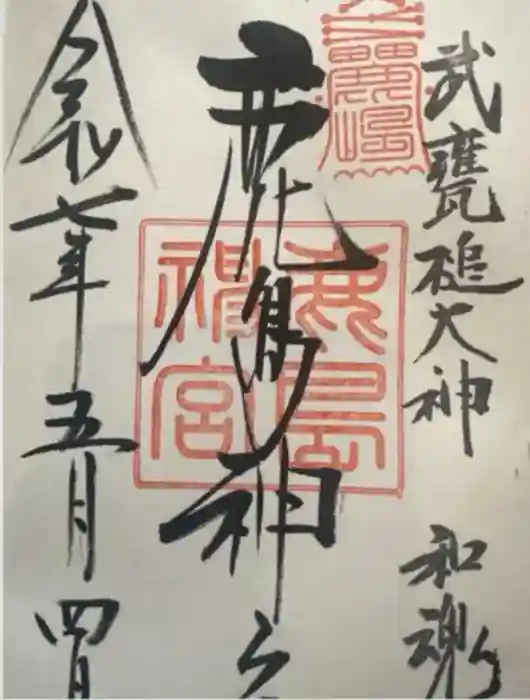 武甕槌大神 和魂
鹿嶋
鹿島神宮
鹿島
神宮
令和七年五月四日